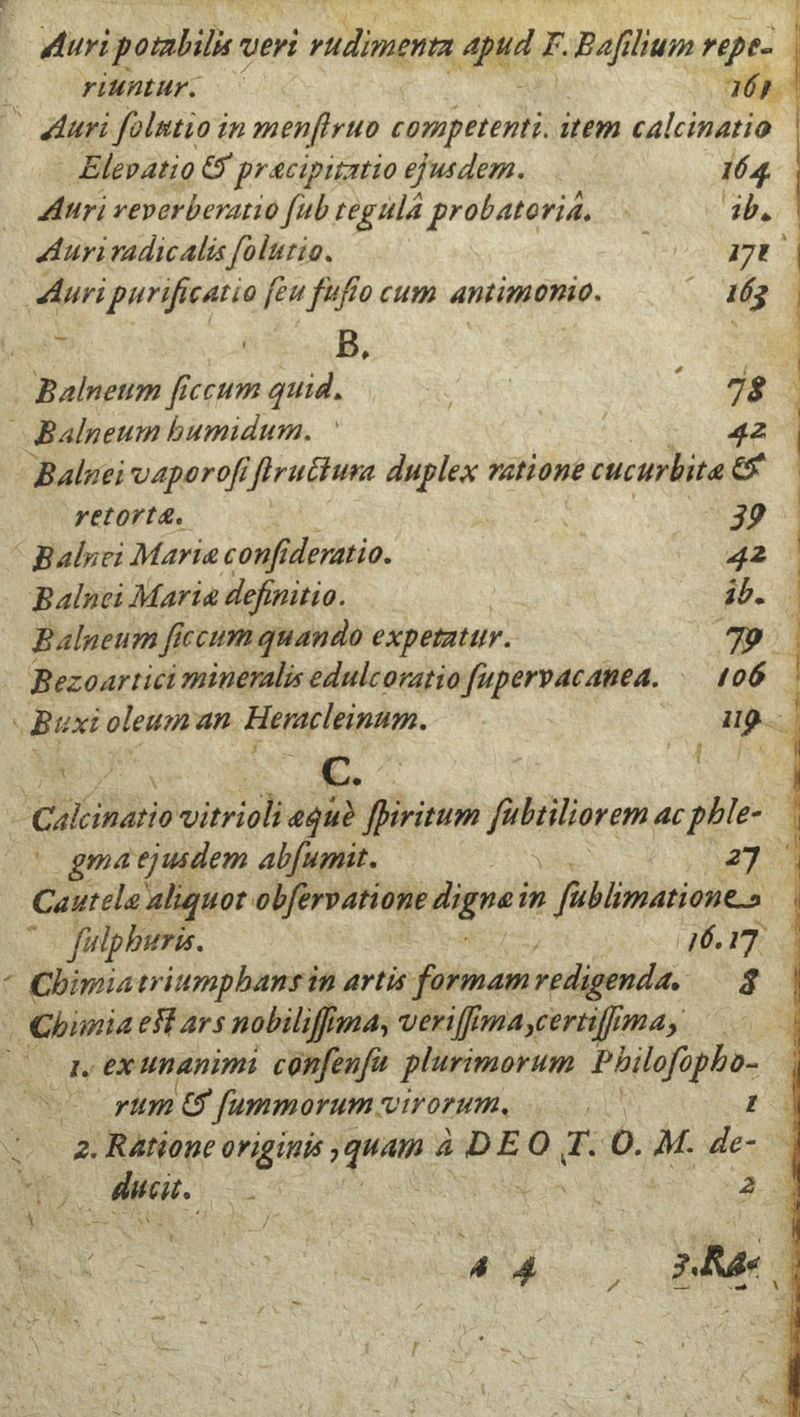 Auri potabilis veri rudimenta apud F. Baſilium repe-
riuntur. 161
Auri ſolutio in menſtruo competenti. item calcinatio
Elevatio & præcipitatio ejusdem. 164
Auri reverberatio ſub tegulâ probatoriâ. ib.
Auri radicalis ſolutio. 171
Auri purificatio ſeu fuſio cum antimonio. 163
B.
Balneum ſiccum quid. 78
Balneum humidum. 42
Balnei vaporoſi ſtructura duplex ratione cucurbitæ &
retortæ. 39
Balnei Mariæ conſideratio. 42
Balnei Mariæ definitio. ib.
Balneum ſiccum quando expetatur. 79
Bezoartici mineralis edulcoratio ſupervacanea. 106
Buxi oleum an Heracleinum. 119
C.
Calcinatio vitrioli æquè ſpiritum ſubtiliorem ac phle-
gma ejusdem abſumit. 27
Cautelæ aliquot obſervatione dignæ in ſublimatione
ſulphuris. 16.17
Chimia triumphans in artis formam redigenda. 8
Chimia eſt ars nobiliſſima, veriſſima, certiſſima,
1. ex unanimi conſenſu plurimorum Philoſopho-
rum & ſummorum virorum. 1
2. Ratione originis, quam à DEO T. O. M. de-
ducit. 2
a 4 3. Ra-